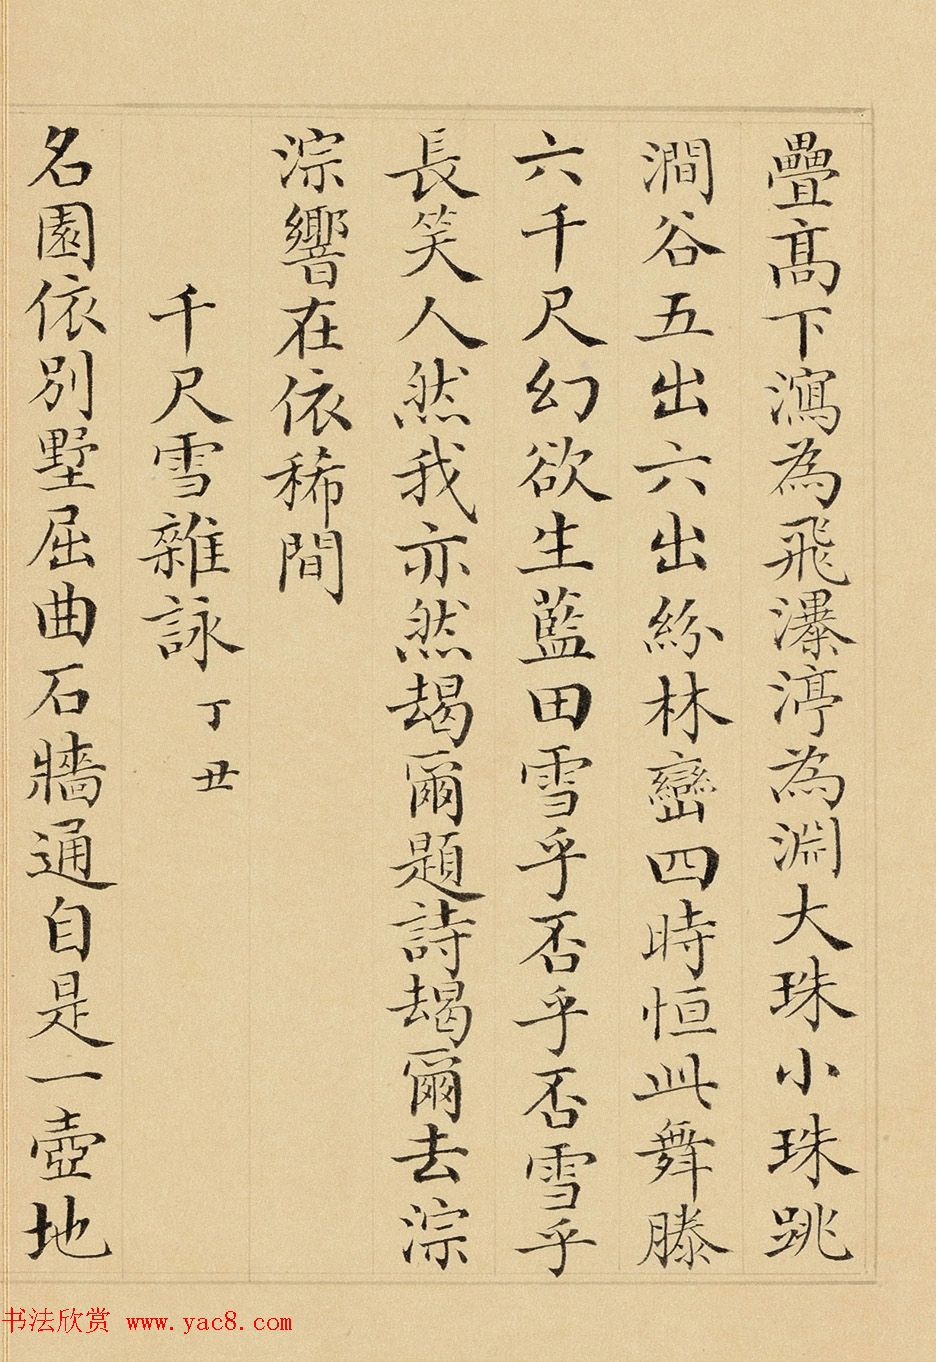 疊髙下瀉為飛瀑渟為淵大珠小珠跳
澗谷五出六出紛林巒四時恒此舞滕
六千尺幻欲生藍田雪乎否乎否雪乎
長笑人然我亦然朅爾題詩朅爾去淙
淙響在依稀間
千尺雪雜詠 丁丑
名園依別墅屈曲石牆通自是一壺地
书法欣赏 www.yac8.com